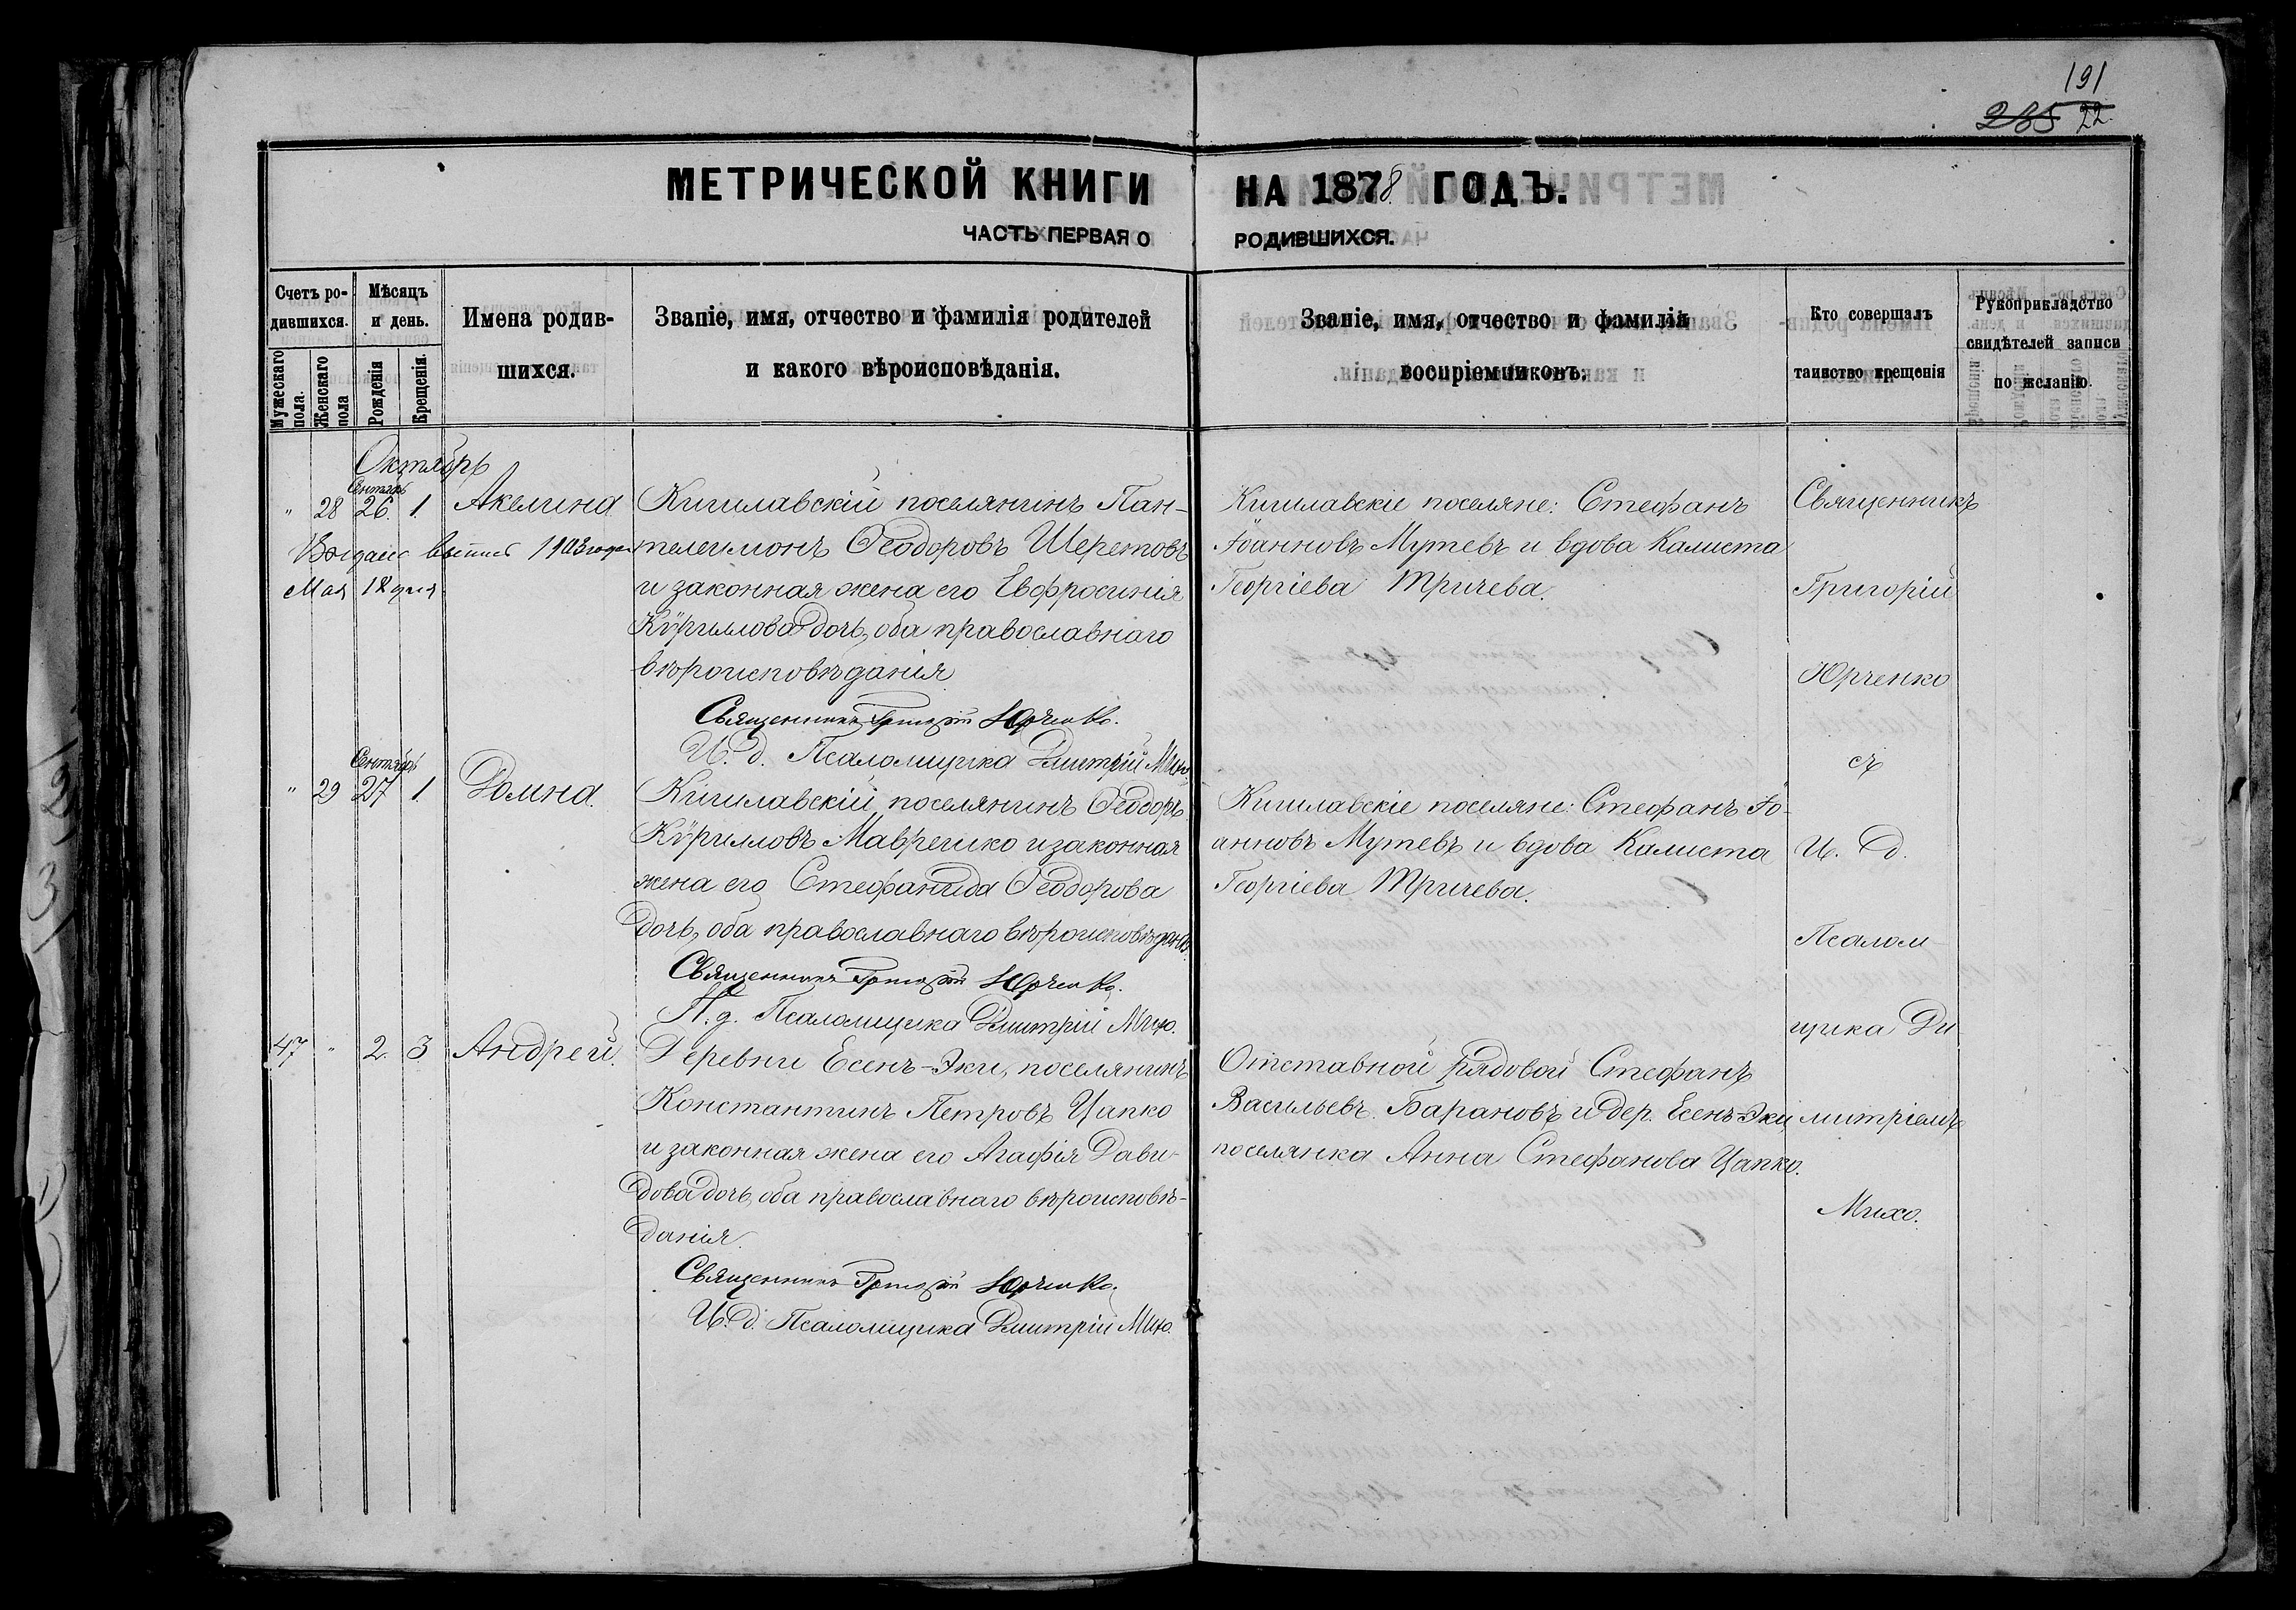 191
285 22
МЕТРИЧЕСКОЙ КНИГИ НА 1878 ГОДЪ.
ЧАСТЬ ПЕРВАЯ О РОДИВШИХСЯ.
Счетъ родившихся.
Мужескаго пола.
Женскаго пола
Мѣсяцъ и день.
Рожденія
Крещенія.
Имена родив-
шихся.
Званіе, имя, отчество и фамилія родителей
и какого вѣроисповѣданія.
Званіе, имя, отчество и фамилія
воспріемниковъ.
Кто совершалъ
таинство крещенія
Рукоприкладство
свидѣтелей записи
по желанію.
Октябрь
Сентябрь
" 28 26. 1. Акелина
Выдана выпись 1903 года
Мая 18 дня
Кишлавскій поселянинъ Пан-
телеимонъ Ѳеодоровъ Шеретовъ
и законная жена его Евфросинія
Кѵриллова дочь, оба православнаго
вѣроисповѣданія
Священникъ Григорій Юрченко.
И. д. Псаломщика Дмитрій Михо.
Кишлавскіе поселяне: Стефанъ
Іоанновъ Мутевъ и вдова Калиста
Георгіева Тричева.
Сентябрь
" 29 27 1. Домна.
Кишлавскій поселянинъ Ѳеодоръ
Кѵрилловъ Маврешко и законная
жена его Стефанида Ѳеодорова
дочь, оба православнаго вѣроисповѣданія
Священникъ Григорій Юрченко.
И. д. Псаломщика Дмитрій Михо.
Кишлавскіе поселяне: Стефанъ Іо-
анновъ Мутевъ и вдова Калиста
Георгіева Тричева.
47 " 2. 3 Андрей.
Деревни Есенъ-Эки, поселянинъ
Константинъ Петровъ Цапко
и законная жена его Агафія Дави-
дова дочь, оба православнаго вѣроисповѣ-
данія.
Священникъ Григорій Юрченко.
И. д. Псаломщика Дмитрій Михо.
Отставной рядовой Стефанъ
Васильевъ Барановъ и дер. Есенъ-Эки
поселянка Анна Стефанова Цапко.
Священникъ
Григорій
Юрченко
съ
И. д.
Псалом-
щика Ди-
митріемъ
Михо.